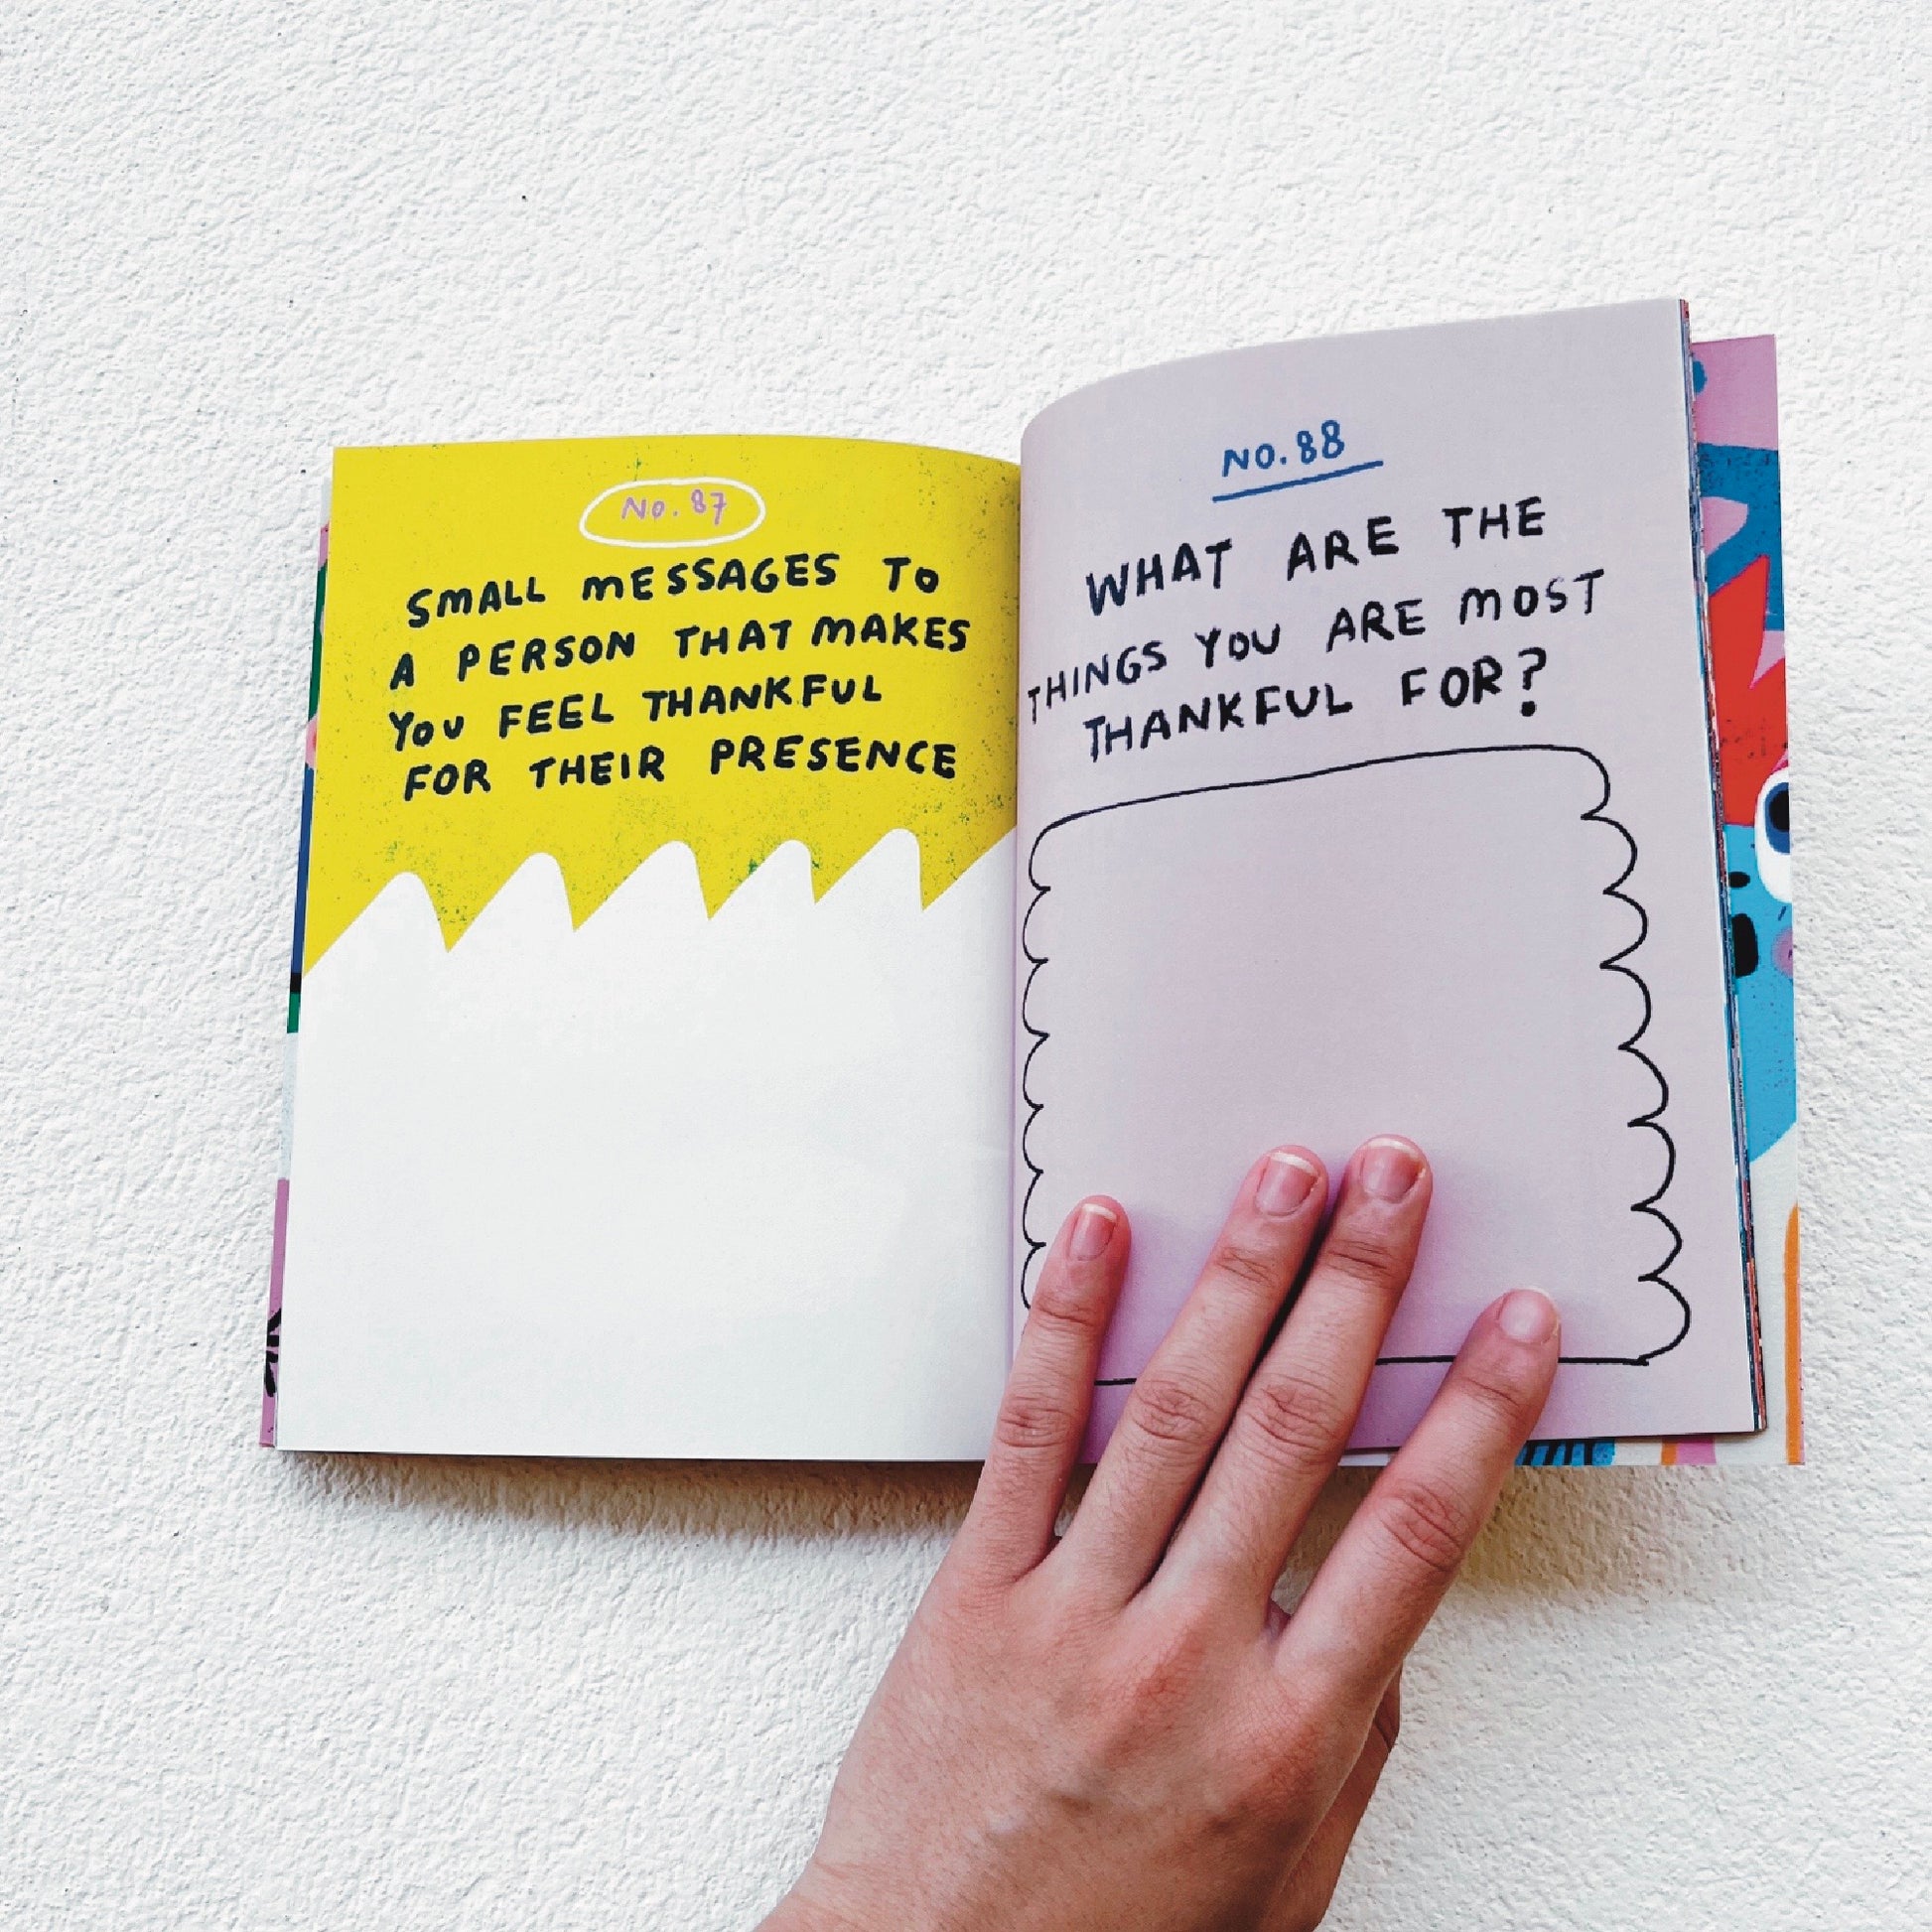 No. 87
SMALL MESSAGES TO
A PERSON THAT MAKES
YOU FEEL THANKFUL
FOR THEIR PRESENCE
NO. 88
WHAT ARE THE
THINGS YOU ARE MOST
THANKFUL FOR?